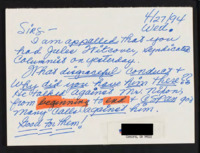 4/27/94
Wed.
Sirs —
I am appalled that you
had Jules Witcover, Syndicated
Columnist on yesterday.
His disgraceful conduct &
Why did you have him there
against Mr. Nixon,
from beginning to end &
many calls against him.
Good for them!